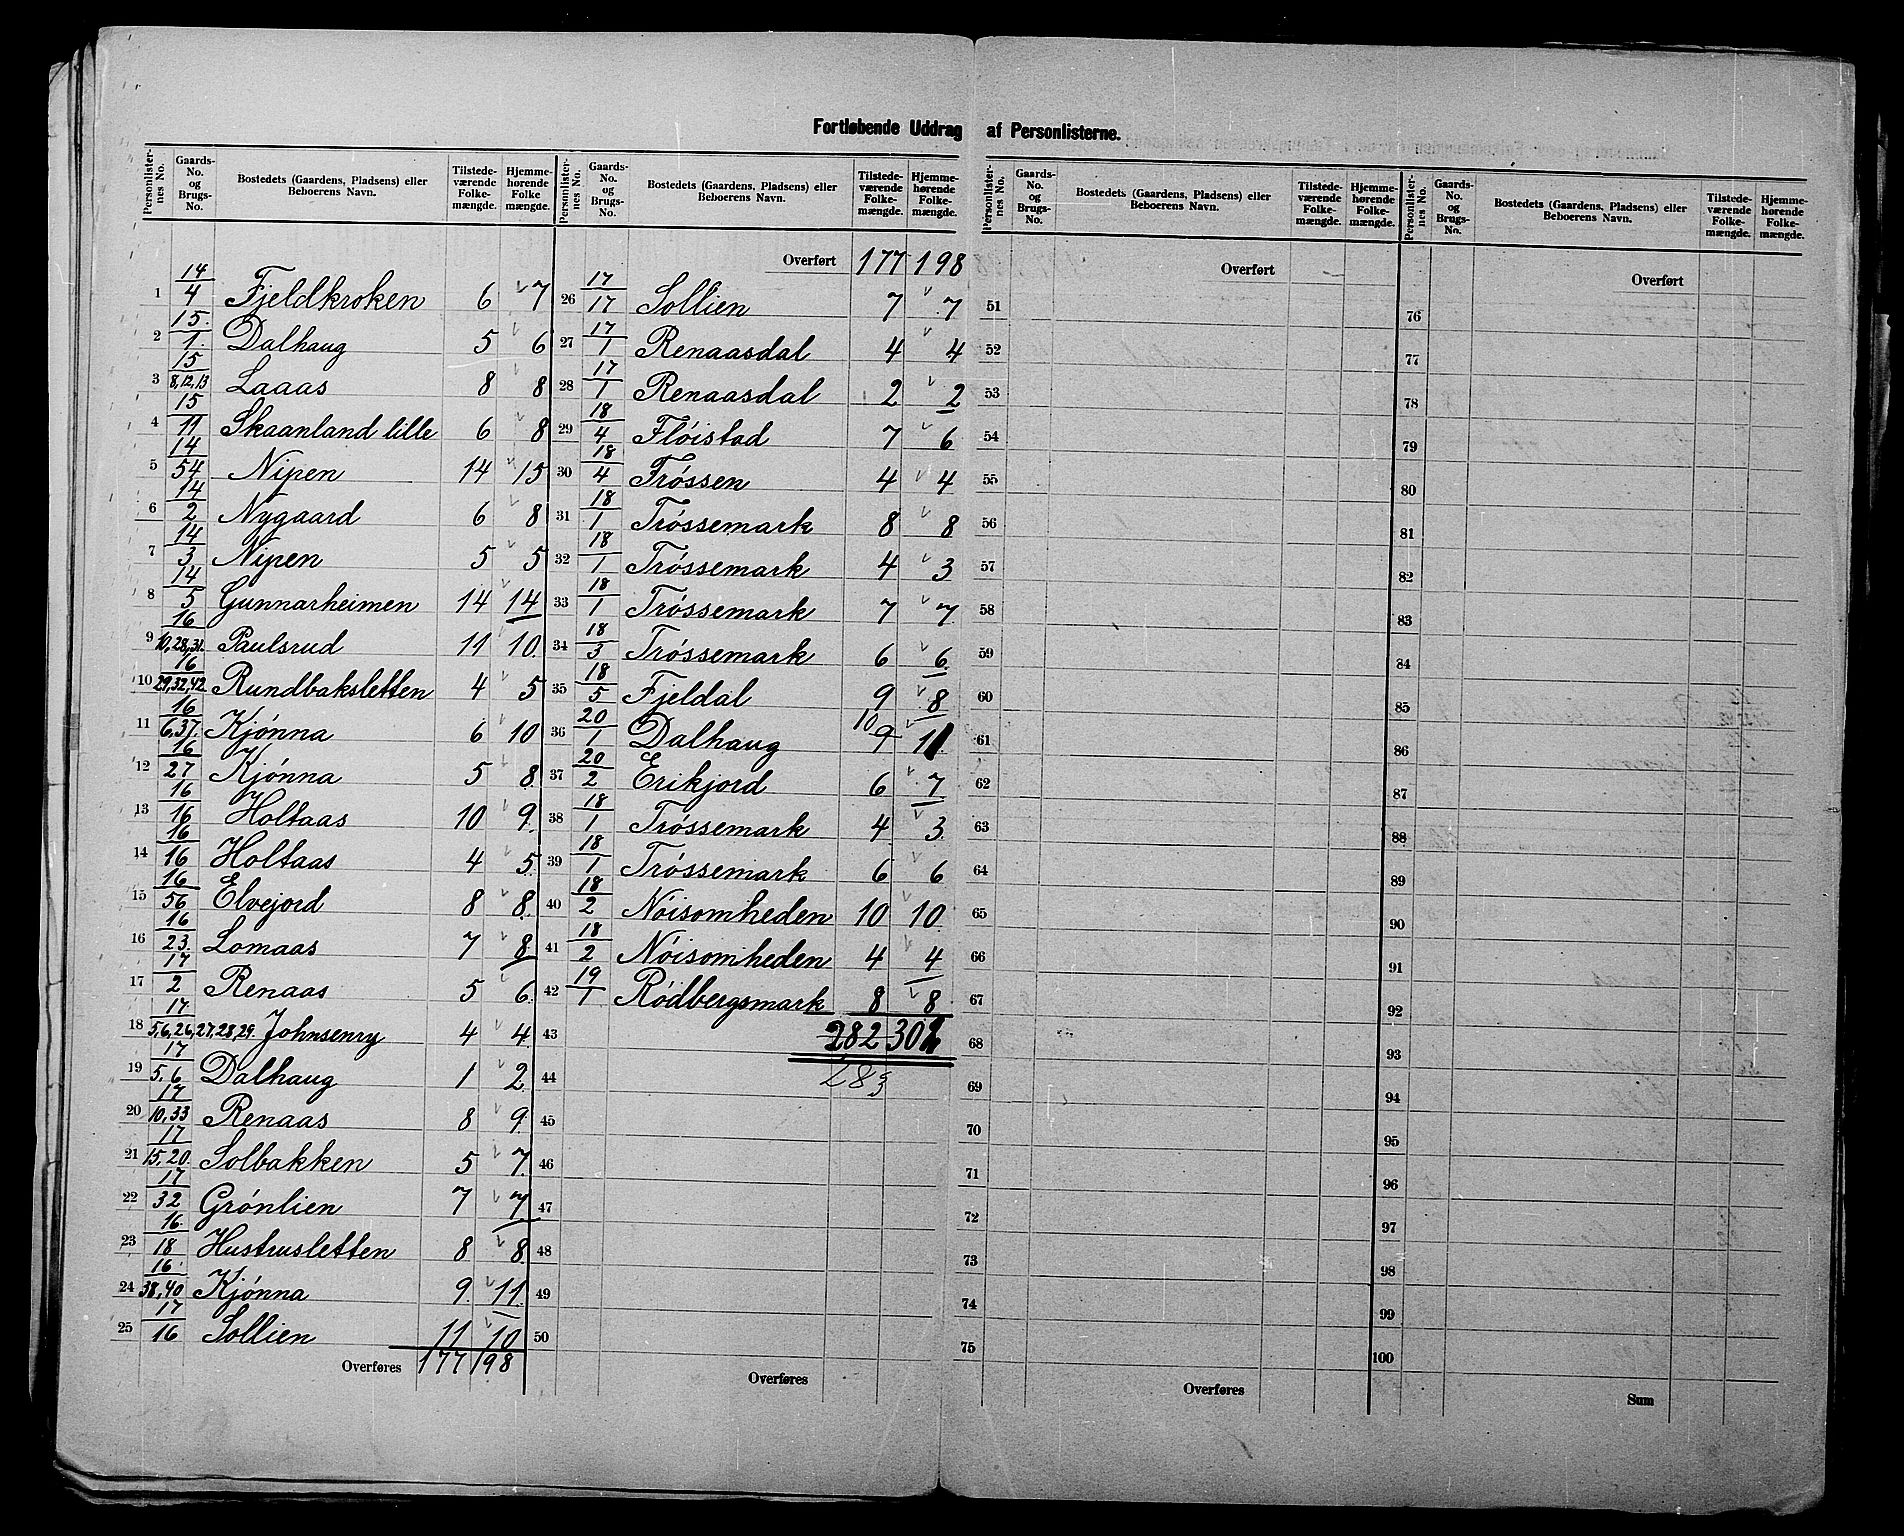 Fortløbende Uddrag af Personlisterne.
Personlister-nes No. | Gaards-No. og Brugs-No. | Bostedets (Gaardens, Pladsens) eller Beboerens Navn. | Tilstede-værende Folke-mængde. | Hjemme-hørende Folke mængde.
1 14/4 Fjeldkroken 6 7
2 15./1. Dalhaug 5 6
3 15/8,12,13 Laaas 8 8
4 15/11 Skaanland lille 6 8
5 14/54 Nipen 14 15
6 14/2 Nygaard 6 8
7 14/3 Nipen 5 5
8 14/5 Gunnarheimen 14 14
9 16/10,28,31. Paulsrud 11 10.
10 16/29,32,42 Rundbaksletten 4 5
11 16/6,37. Kjønna 6 10
12 16/27 Kjønna 5 8
13 16/16 Holtaas 10 9.
14 16/16 Holtaas 4 5
15 16/56 Elvejord 8 8.
16 16/23. Lomaas 7 8
17 17/2 Renaas 5 6
18 17/5,6,26,27,28,29. Johnsenry 4 4
19 17/5,6 Dalhaug 1 2
20 17/10,33 Renaas 8 9.
21 17/15,20. Solbakken 5 7
22 17/32 Grønlien 7 7
23 16./18 Hustrusletten 8 8
24 16./38,40 Kjønna 9. 11
25 17/16 Sollien 11 10
Overføres 177 198
Personlister-nes No. | Gaards-No. og Brugs-No. | Bostedets (Gaardens, Pladsens) eller Beboerens Navn. | Tilstede-værende Folke-mængde. | Hjemme-hørende Folke-mængde.
Overført 177 198
26 17/17 Sollien 7 7
27 17/1 Renaasdal 4 4
28 17/1 Renaasdal 2 2
29 18/4 Fløistad 7 6
30 18/4 Frøssen 4 4
31 18/1 Trøssemark 8 8
32 18/1 Trøssemark 4 3
33 18/1 Trøssemark 7 7
34 18/3 Trøssemark 6 6
35 18/5 Fjeldal 9 8
36 20/1 Dalhaug 10 9 11
37 20/2 Erikjord 6 7
38 18/1 Trøssemark 4 3
39 18/1 Trøssemark 6 6
40 18/2 Nøisomheden 10 10
41 18/2 Nøisomheden 4 4
42 19/1 Rødbergsmark 8 8
43 282
44 283
45
46
47
48
49
50
Overføres
Personlister-nes No. | Gaards-No. og Brugs-No. | Bostedets (Gaardens, Pladsens) eller Beboerens Navn. | Tilstede-værende Folke-mængde. | Hjemme-hørende Folke-mængde.
Overført
51
52
53
54
55
56
57
58
59
60
61
62
63
64
65
66
67
68
69
70
71
72
73
74
75
Overføres
Personlister-nes No. | Gaards-No. og Brugs-No. | Bostedets (Gaardens, Pladsens) eller Beboerens Navn. | Tilstede-værende Folke-mængde. | Hjemme-hørende Folke-mængde.
Overført
76
77
78
79
80
81
82
83
84
85
86
87
88
89
90
91
92
93
94
95
96
97
98
99
100
Sum